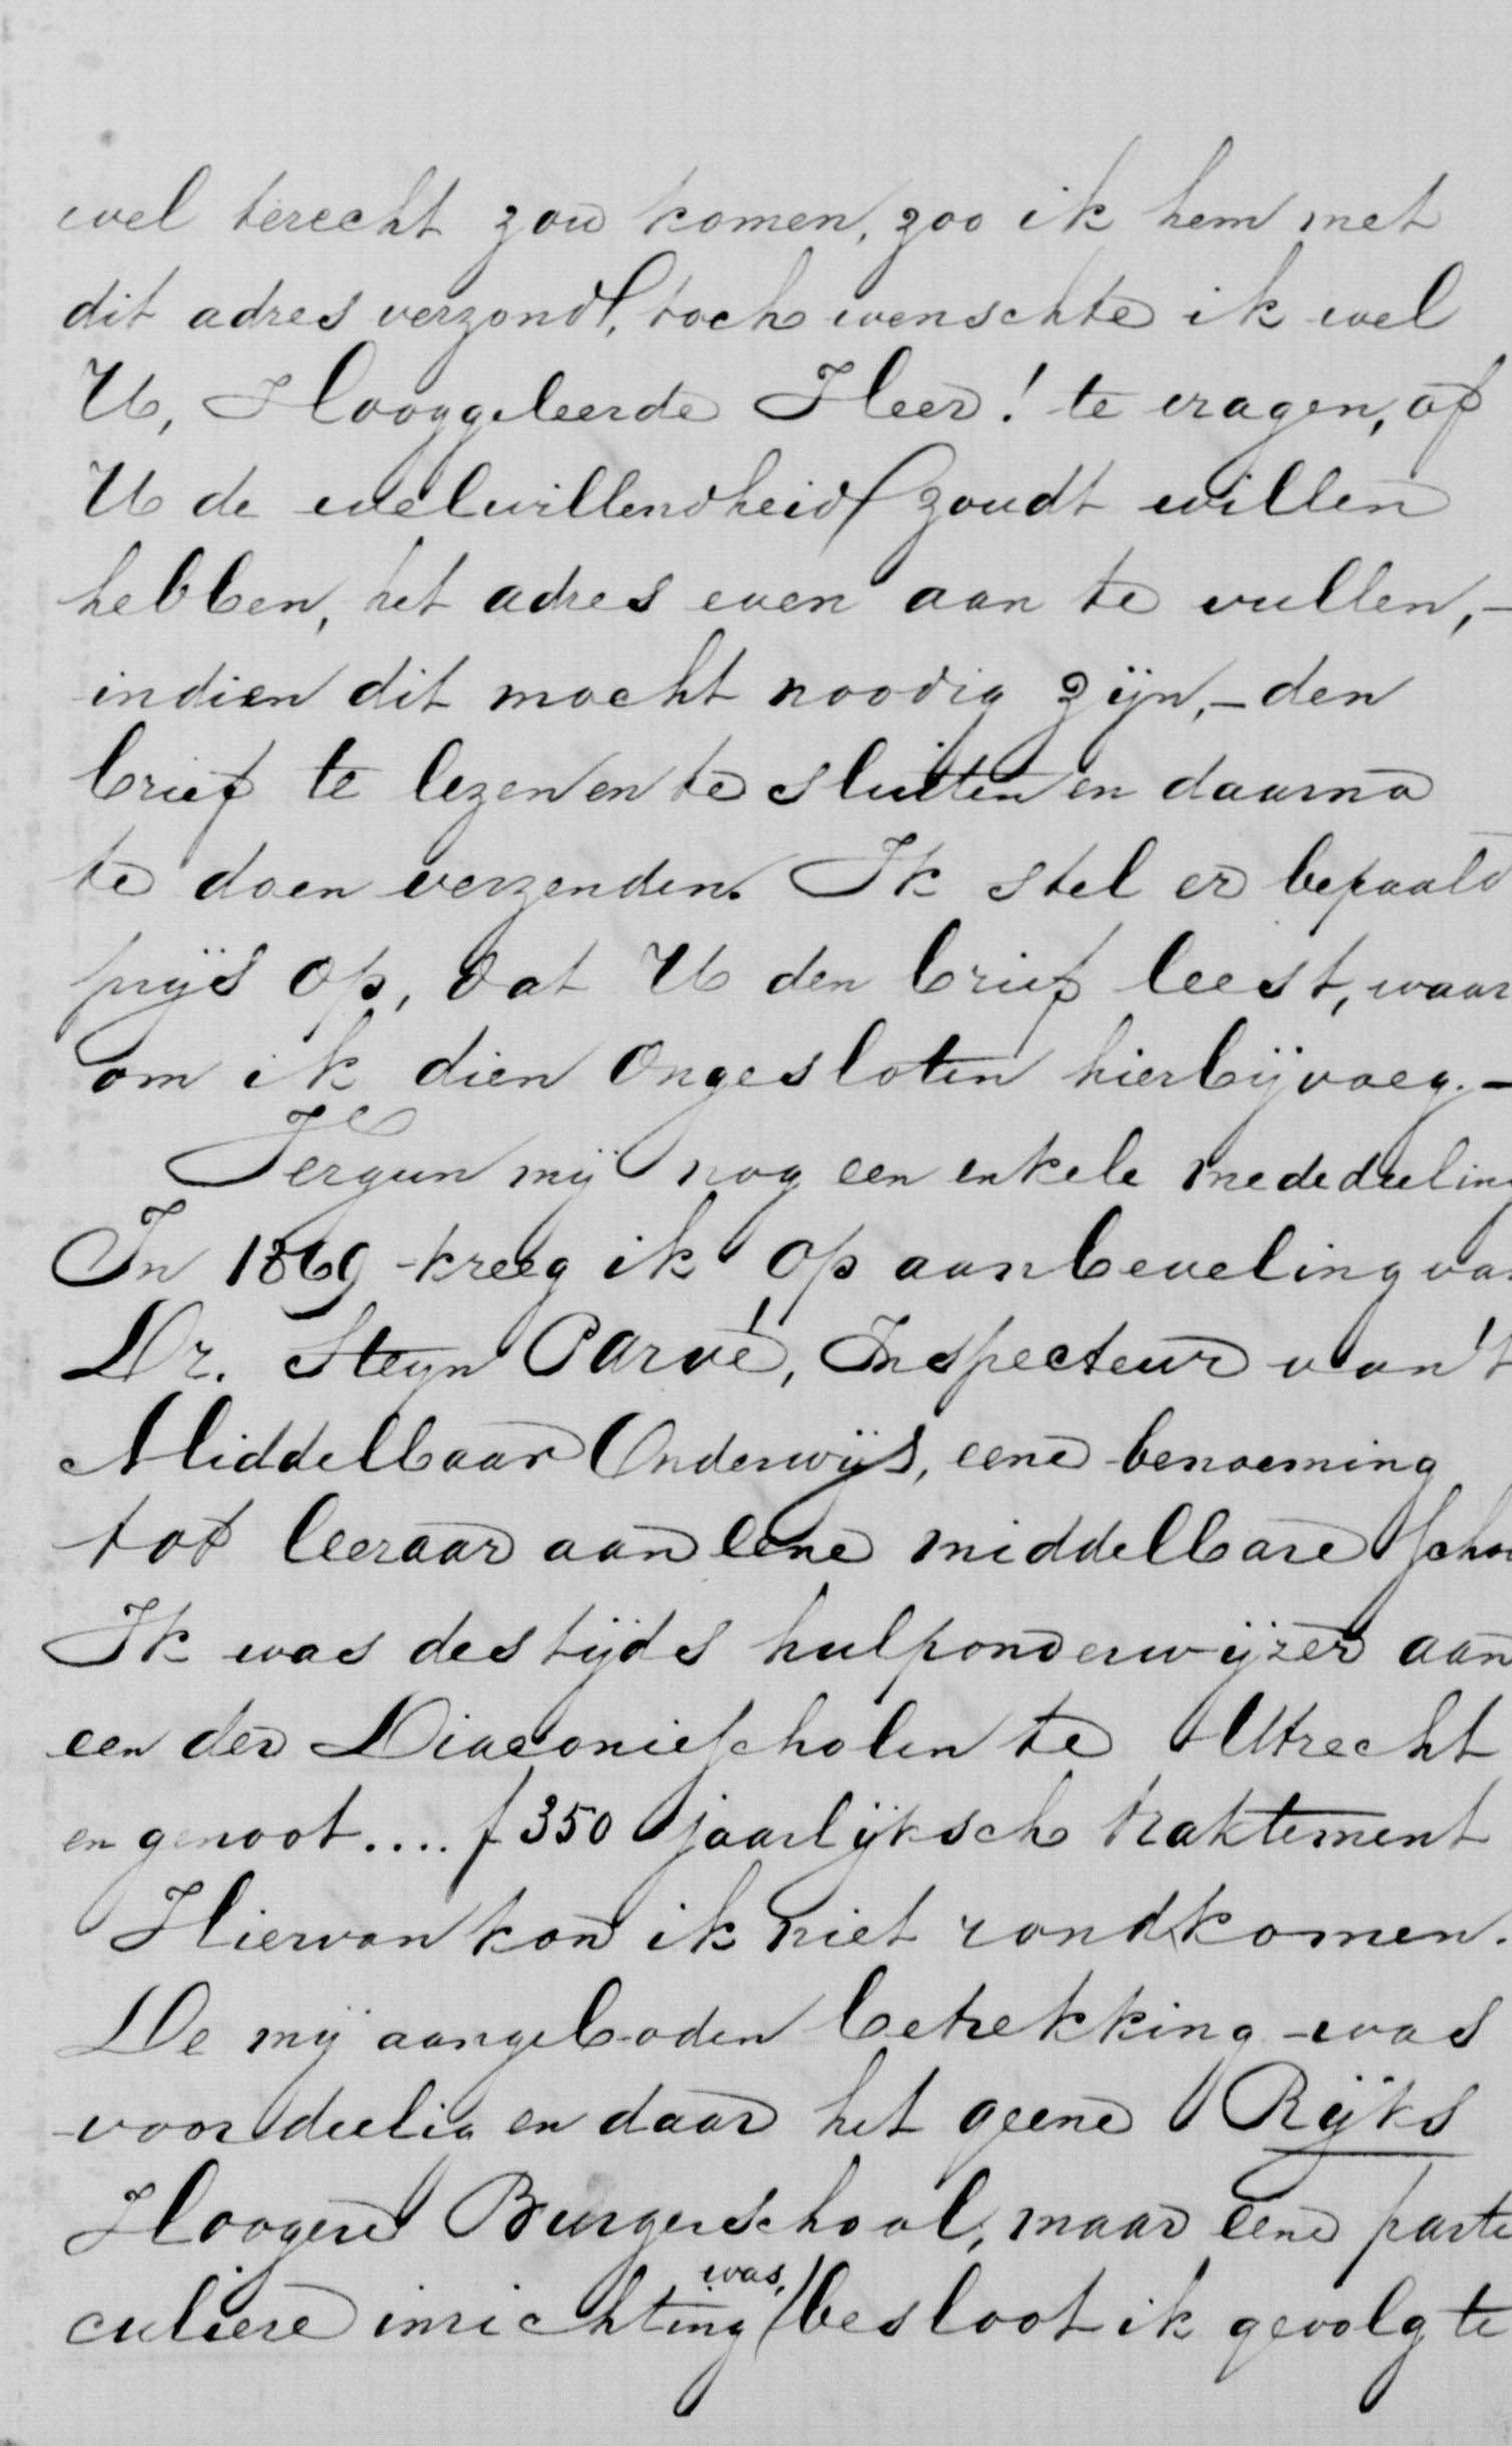 wel terecht zou komen, zoo ik hem met
dit adres verzond, toch wenschte ik wel
U, Hooggeleerde Heer! te vragen, of
U de welwillendheid zoudt willen
hebben, het adres even aan te vullen,-
indien dit mocht noodig zijn,- den
brief te lezen en te sluiten en daarna
te doen verzenden. Ik stel er bepaald
prijs op, dat U den brief leest, waar
om ik dien ongesloten hierbijvoeg.-
Vergun mij nog een enkele mededeeling
In 1869 kreeg ik op aanbeveling va
Dr. Steyn Parvé, Inspecteur van 't
Middelbaar Onderwijs, eene benoeming
tot leeraar aan eene middelbare Schoo
Ik was destijds hulponderwijzer aan
een der Diaconiescholen te Utrecht
en genoot.... f 350 jaarlijksch traktement
Hiervan kon ik niet rondkomen.
De mij aangeboden betrekking was
voordeelig en daar het geene Rijks
Hoogere Burgerschool, maar eene parti
culiere inrichting was, besloot ik gevolg te